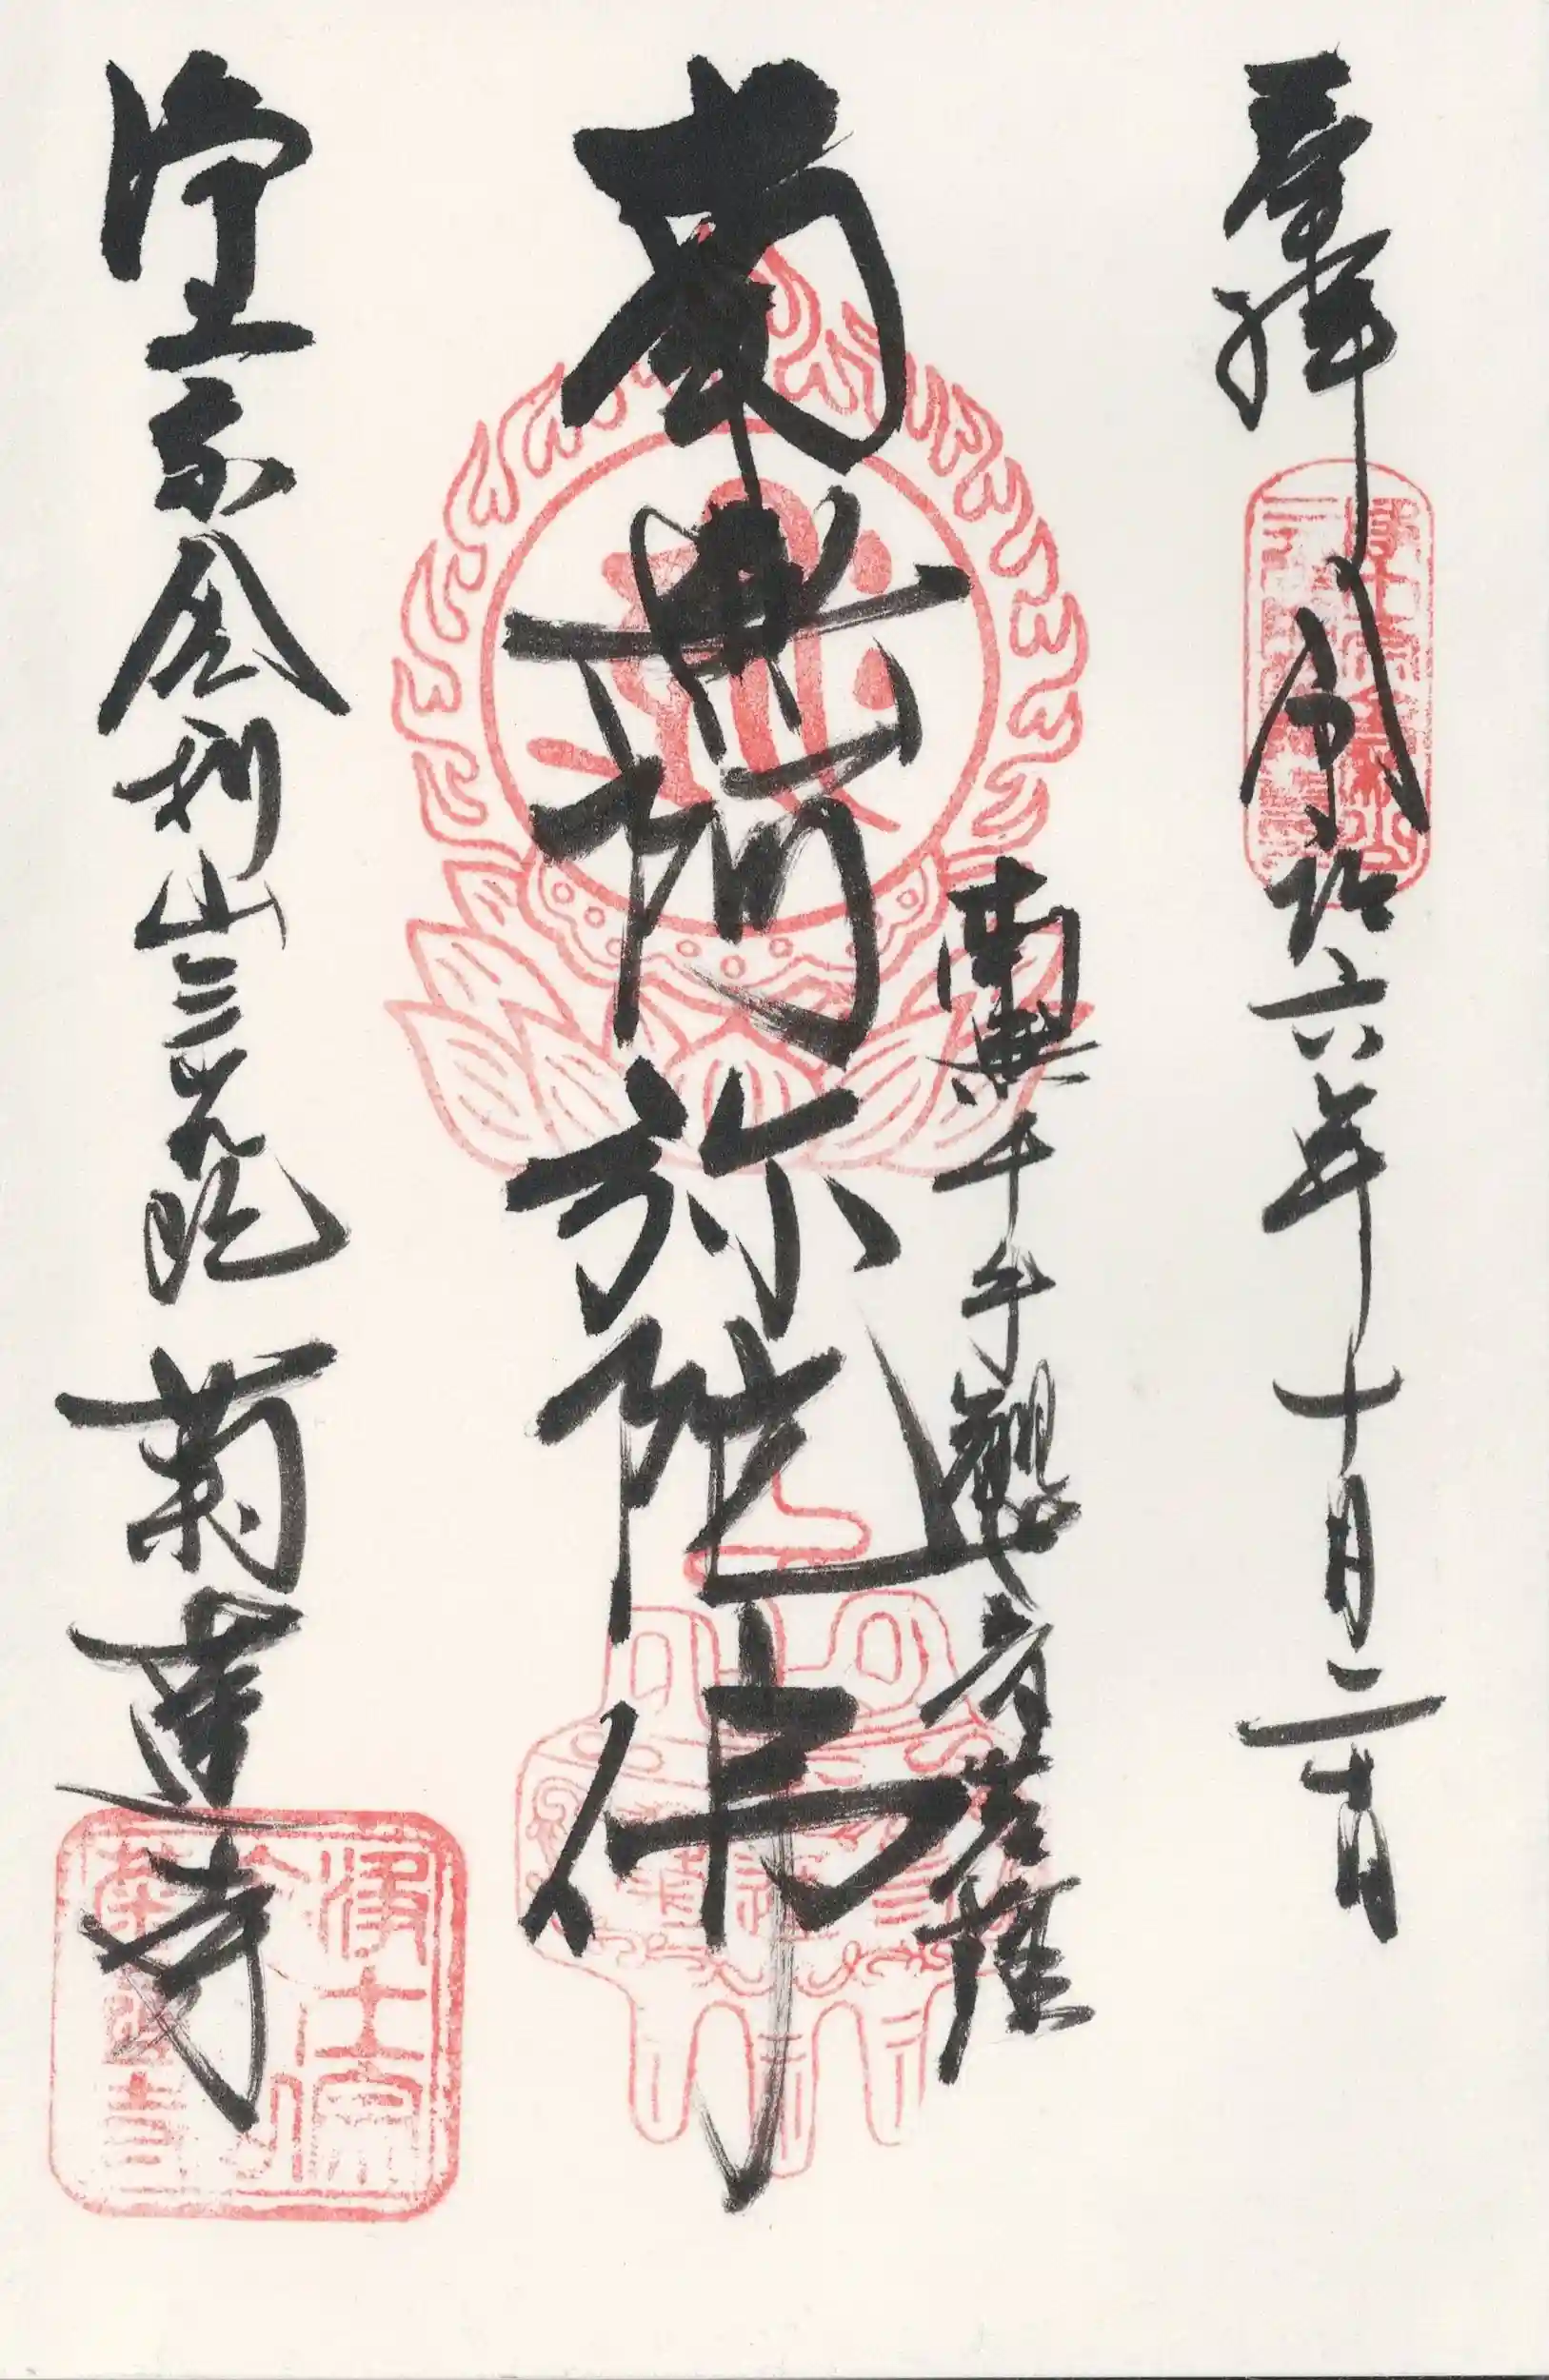 奉拝
令和六年十月二十日
南無千手觀音菩薩
南無阿弥陀仏
浄土宗舎利山三光院菊蓮寺
浄土宗
菊蓮寺